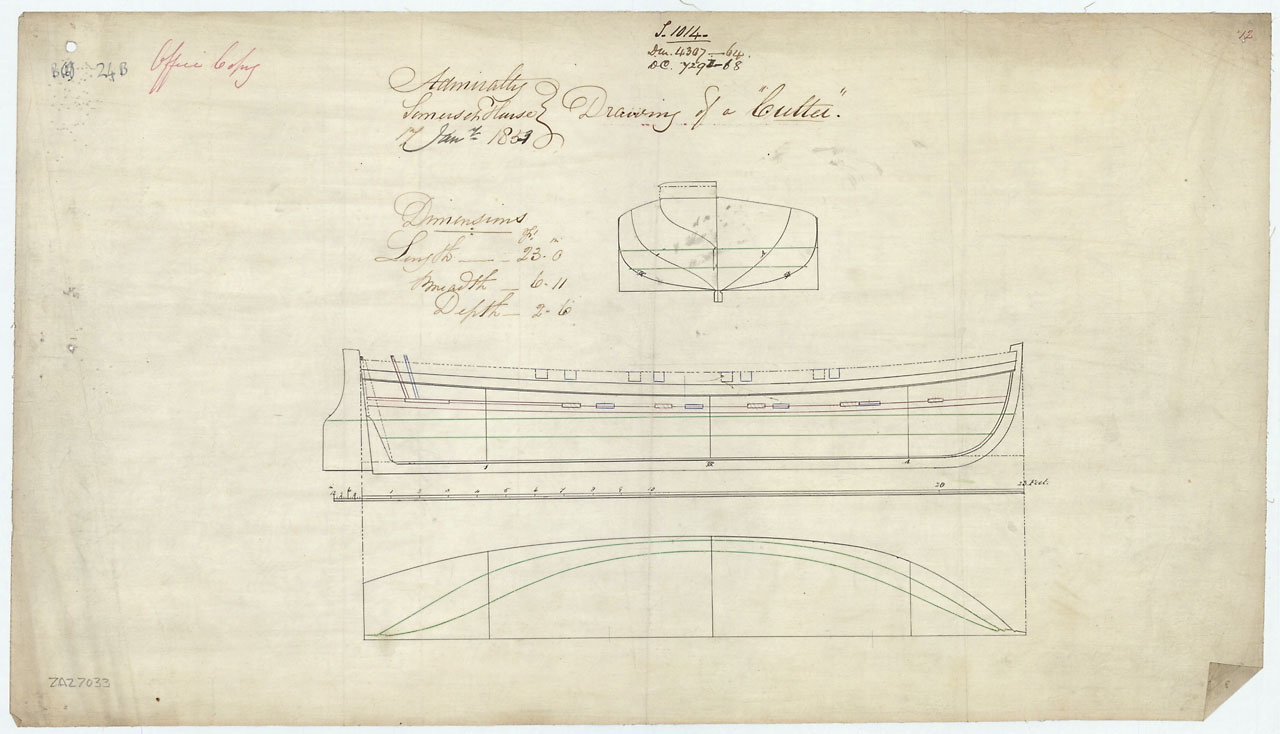 S. 1014.
12
Dm. 4307 — 64
D.C. 7297 — 68
Office Copy
24B
Admiralty
Somerset House
17 Jan.y 1833
Drawing of a "Cutter".
Dimensions
Ft. in
Length — 23. 0
Breadth — 6. 11
Depth — 2. 6
1 2 3 4 5 6 7 8 9 10 20 23 Feet.
ZAZ7033